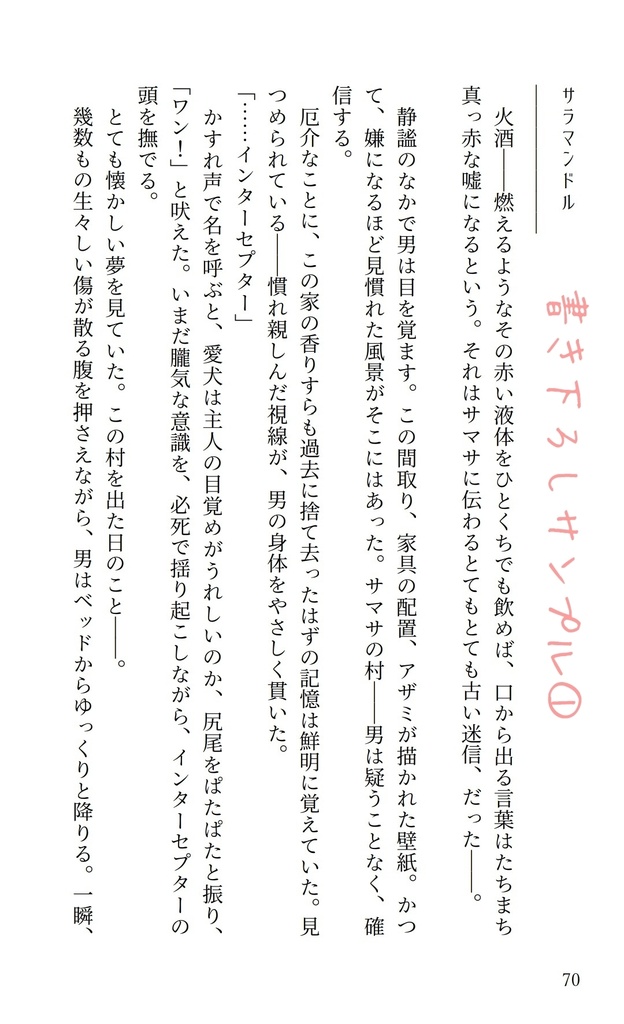 書き下ろしサンプル①
サラマンドル
火酒――燃えるようなその赤い液体をひとくちでも飲めば、口から出る言葉はたちまち
真っ赤な嘘になるという。それはサマサに伝わるとてもとても古い迷信、だった――。
静謐のなかで男は目を覚ます。この間取り、家具の配置、アザミが描かれた壁紙。かつ
て、嫌になるほど見慣れた風景がそこにはあった。サマサの村――男は疑うことなく、確
信する。
厄介なことに、この家の香りすらも過去に捨て去ったはずの記憶は鮮明に覚えていた。見
つめられている――慣れ親しんだ視線が、男の身体をやさしく貫いた。
「……インターセプター」
かすれ声で名を呼ぶと、愛犬は主人の目覚めがうれしいのか、尻尾をぱたぱたと振り、
「ワン！」と吠えた。いまだ朧気な意識を、必死で揺り起こしながら、インターセプターの
頭を撫でる。
とても懐かしい夢を見ていた。この村を出た日のこと――。
幾数もの生々しい傷が散る腹を押さえながら、男はベッドからゆっくりと降りる。一瞬、
70